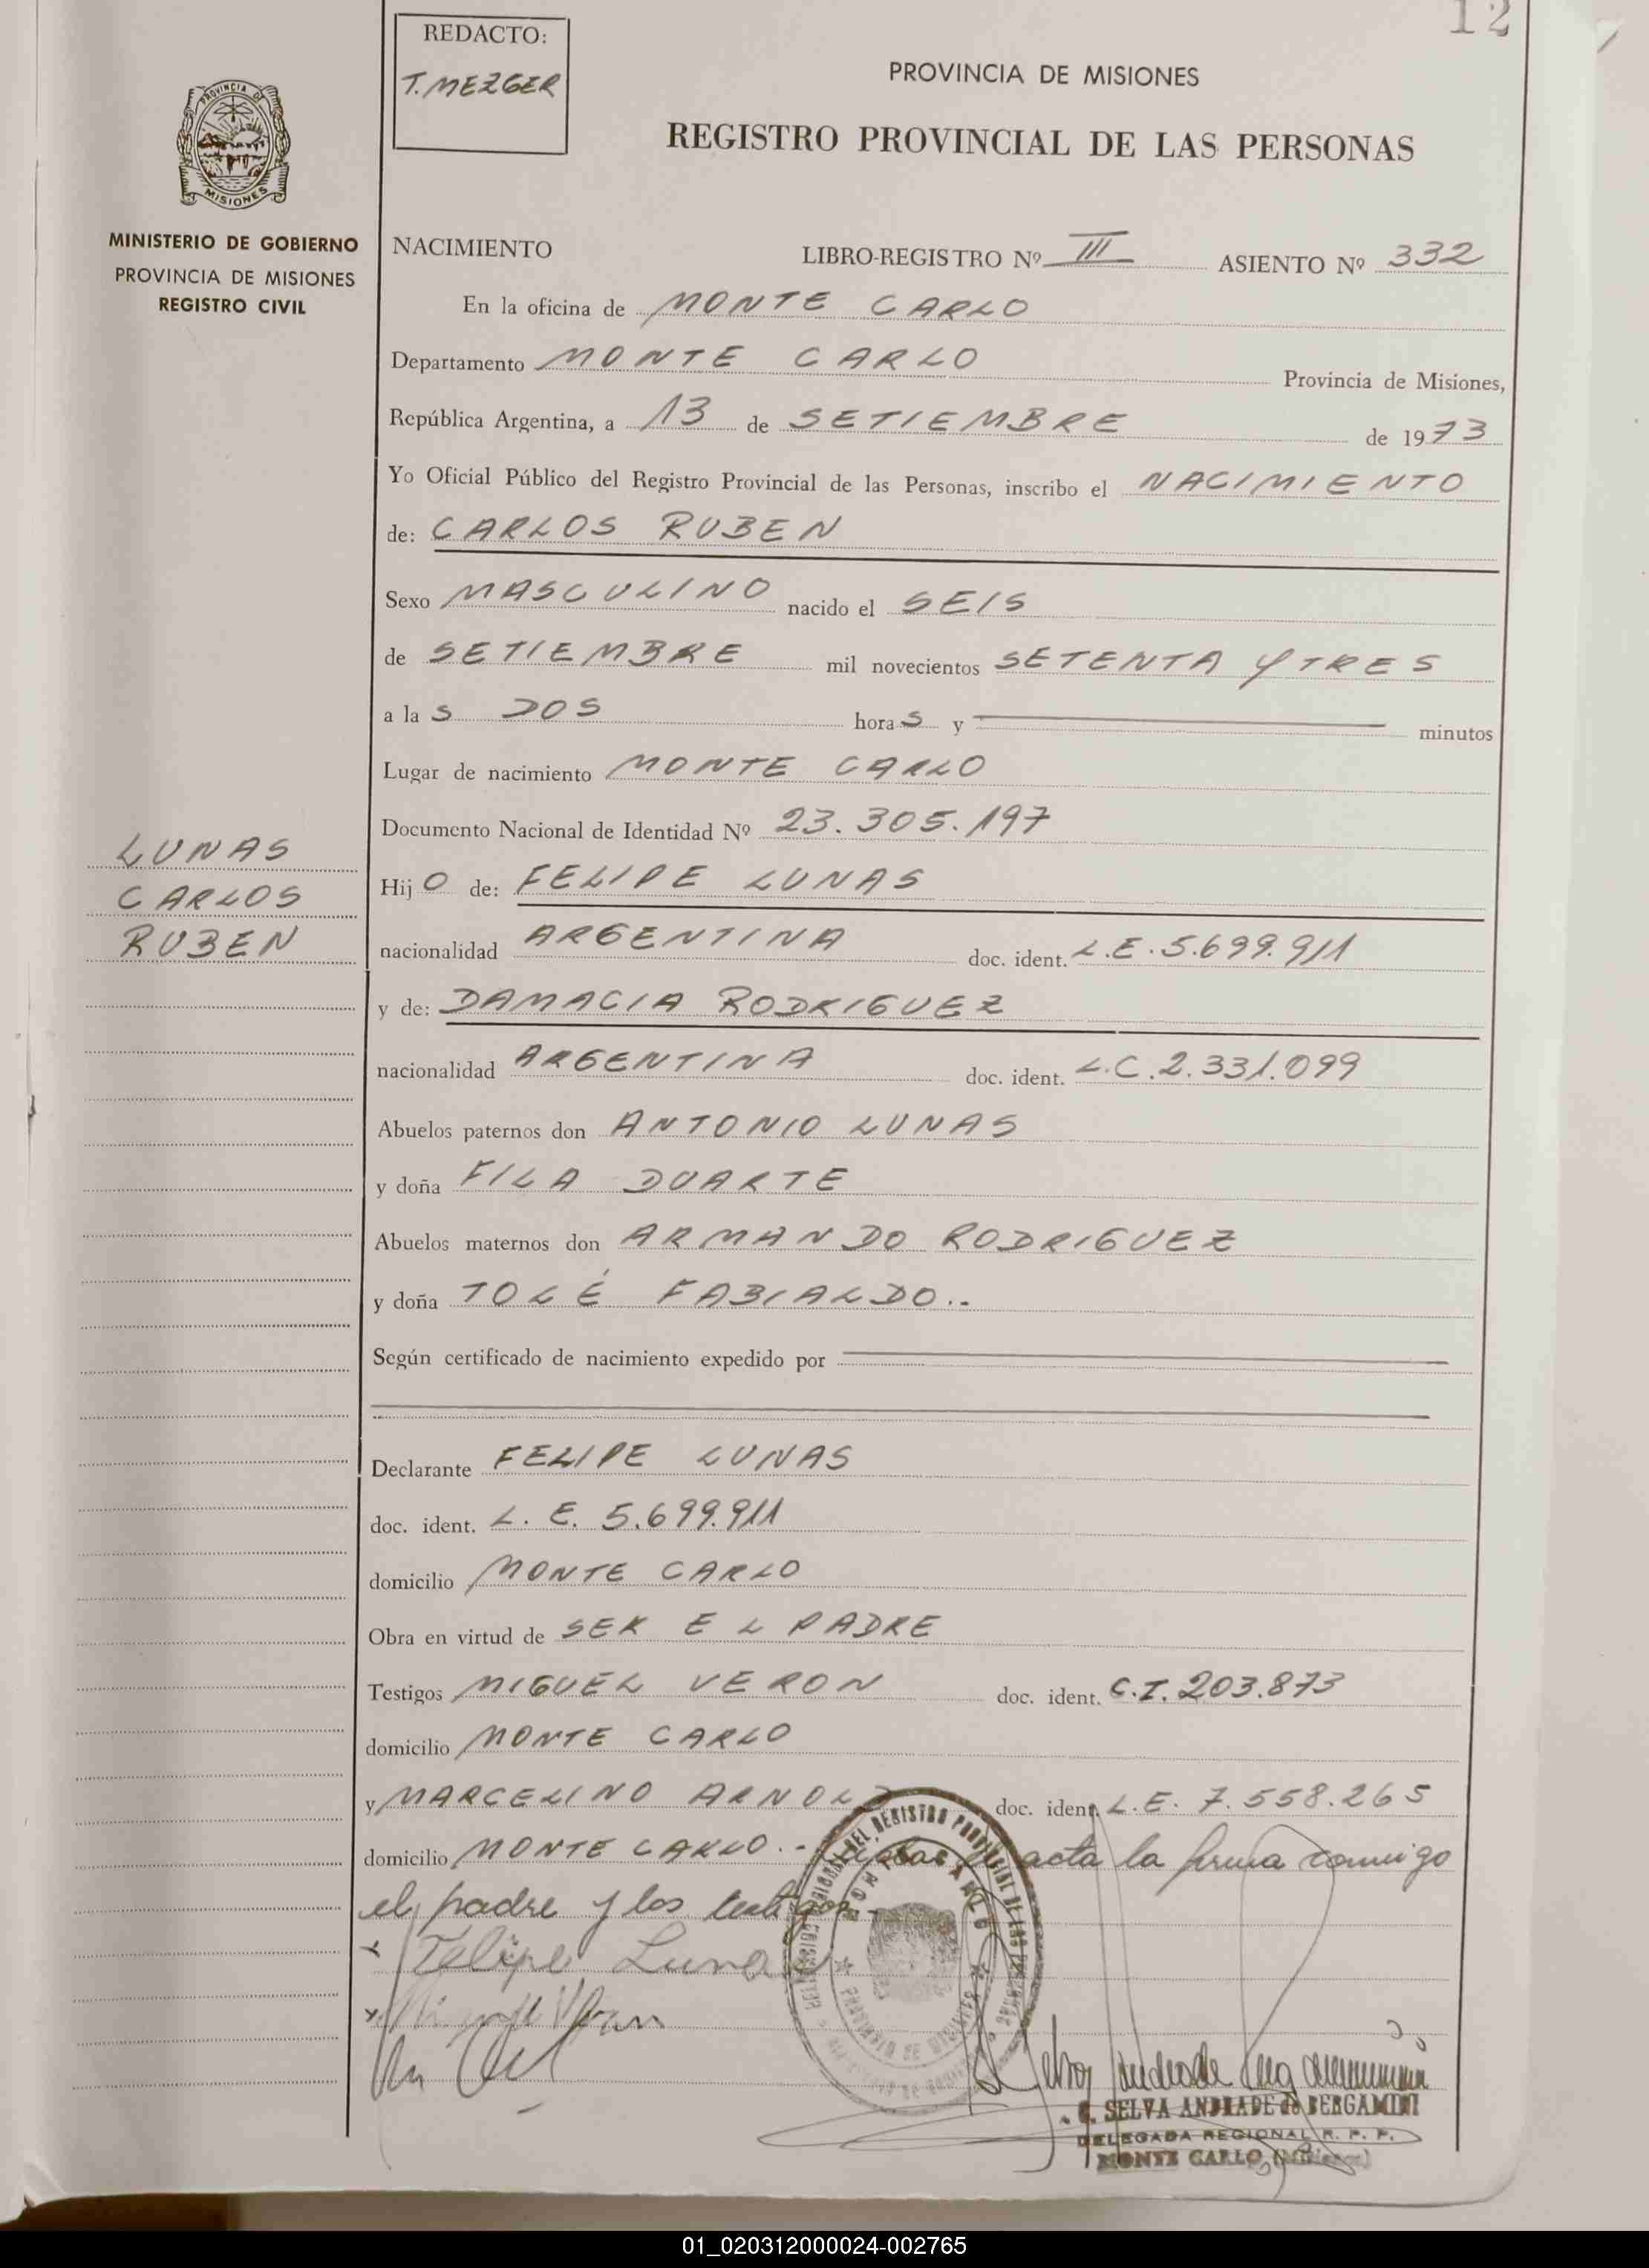 12
REDACTO:
T. MEZGER
PROVINCIA DE MISIONES
REGISTRO PROVINCIAL DE LAS PERSONAS
PROVINCIA DE
MISIONES
MINISTERIO DE GOBIERNO
PROVINCIA DE MISIONES
REGISTRO CIVIL
NACIMIENTO LIBRO-REGISTRO Nº III ASIENTO Nº 332
En la oficina de MONTE CARLO
Departamento MONTE CARLO Provincia de Misiones,
República Argentina, a 13 de SETIEMBRE de 1973
Yo Oficial Público del Registro Provincial de las Personas, inscribo el NACIMIENTO
de: CARLOS RUBEN
Sexo MASCULINO nacido el SEIS
de SETIEMBRE mil novecientos SETENTA Y TRES
a la S DOS hora S y minutos
Lugar de nacimiento MONTE CARLO
Documento Nacional de Identidad Nº 23.305.197
LUNAS
CARLOS
RUBEN
Hij O de: FELIPE LUNAS
nacionalidad ARGENTINA doc. ident. L.E. 5.699.911
y de: DAMACIA RODRIGUEZ
nacionalidad ARGENTINA doc. ident. L.C. 2.331.099
Abuelos paternos don ANTONIO LUNAS
y doña FILA DUARTE
Abuelos maternos don ARMANDO RODRIGUEZ
y doña TOLÉ FABIALDO..
Según certificado de nacimiento expedido por
Declarante FELIPE LUNAS
doc. ident. L. E. 5.699.911
domicilio MONTE CARLO
Obra en virtud de SER EL PADRE
Testigos MIGUEL VERON doc. ident. C.I. 203.873
domicilio MONTE CARLO
y MARCELINO ARNOLD doc. ident. L.E. 7.558.265
domicilio MONTE CARLO.- acta la firma conmigo
el padre y los testigos.-
Felipe Lunas
S. SELVA ANDRADE de BERGAMINI
DELEGADA REGIONAL R. P. P.
MONTE CARLO (Misiones)
01_020312000024-002765